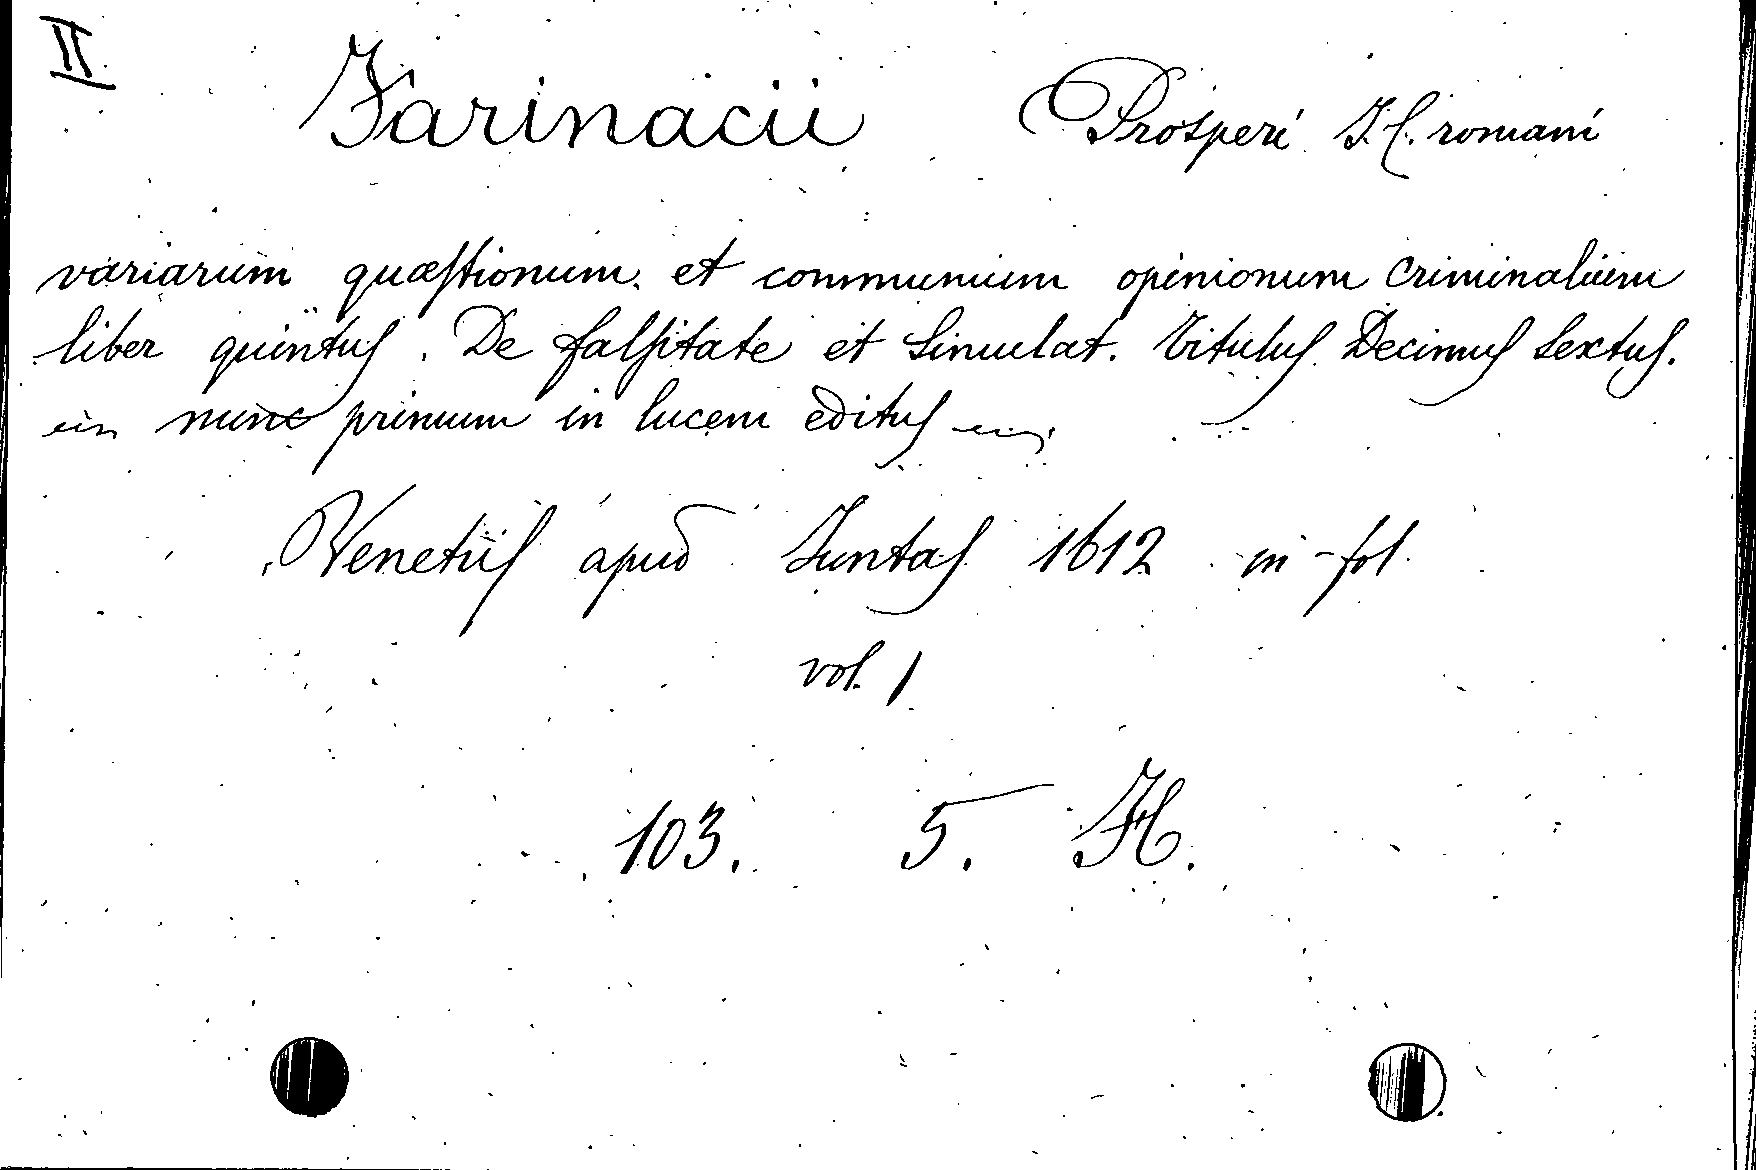 II
Farinacii Prosperi J.C. romani
variarum quæstionum. et communium opinionum criminalium
liber quintus. De falsitate et Simulat. Titulus Decimus sextus.
nunc primum in lucem editus
Venetiis apud Juntas 1612 in-fol.
vol. 1
103. 5. H.